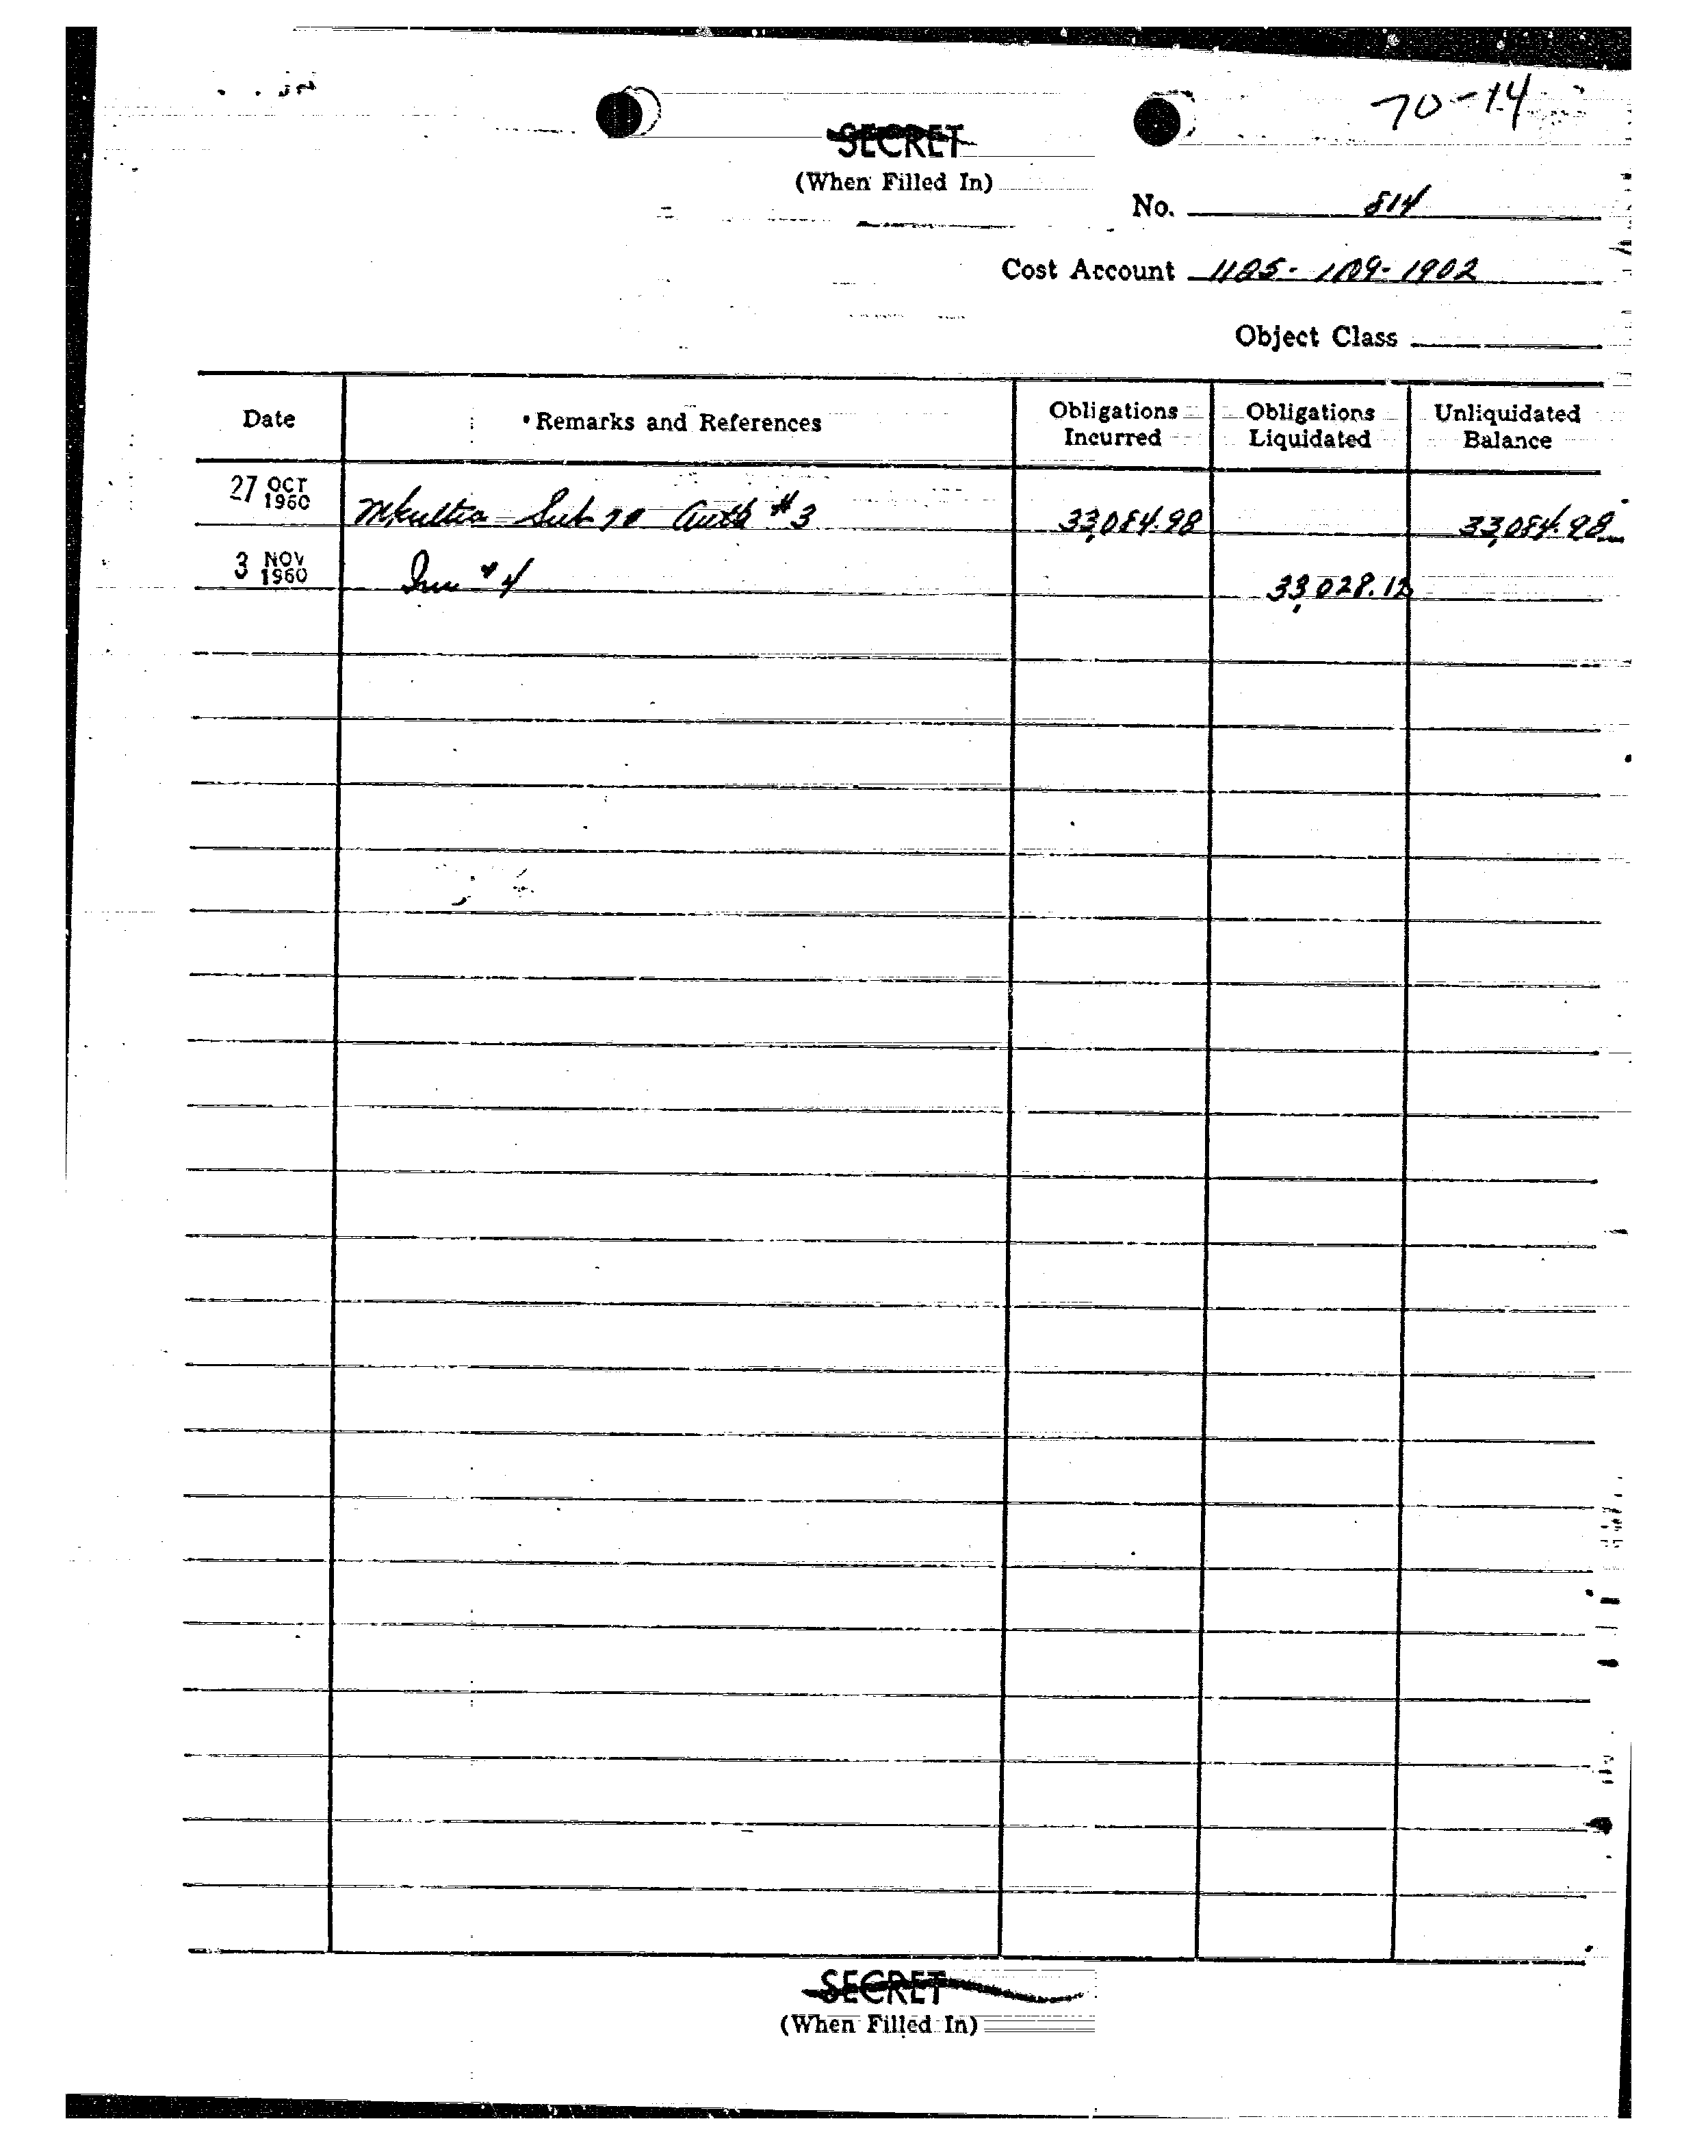 70-14
SECRET
(When Filled In)
No. 814
Cost Account 1125-1109-1902
Object Class
Date Remarks and References Obligations Incurred Obligations Liquidated Unliquidated Balance
27 OCT 1960 Mkultra Sub 70 Auth #3 33,084.98 33,084.98
3 NOV 1960 Inv #4 33,028.12
SECRET
(When Filled In)